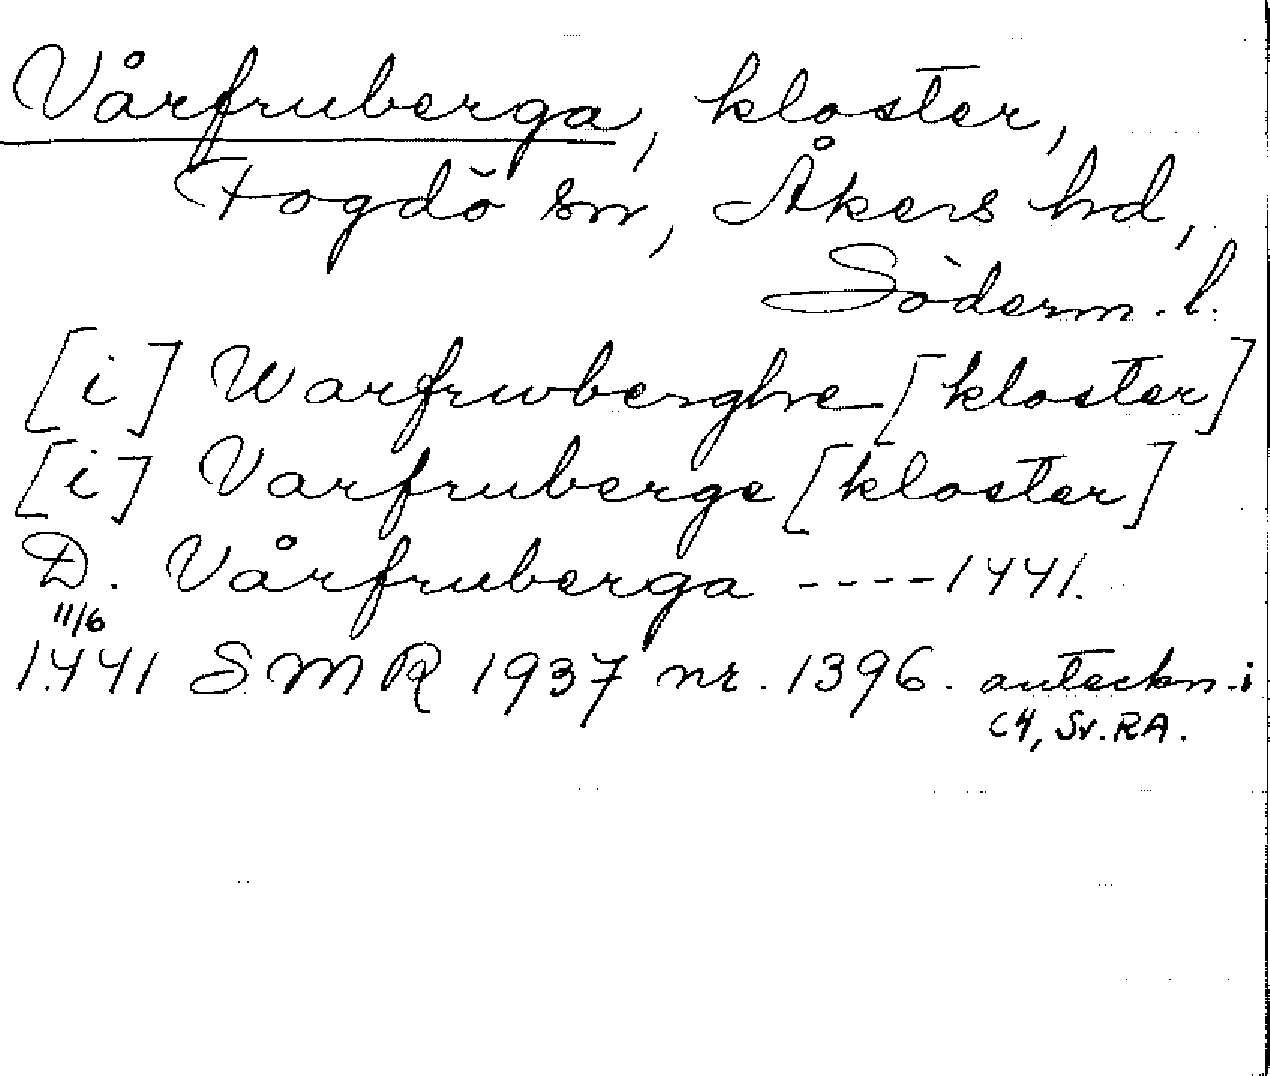 Vårfruberga, kloster,
Fogdö sn, Åkers hd,
Söderm. l.
[i] Warfrwberghe [kloster]
[i] Varfruberge [kloster]
D. Vårfruberga ----1441.
11/6
1441 SMR 1937 nr. 1396. anteckn. i
C4, Sv. RA.